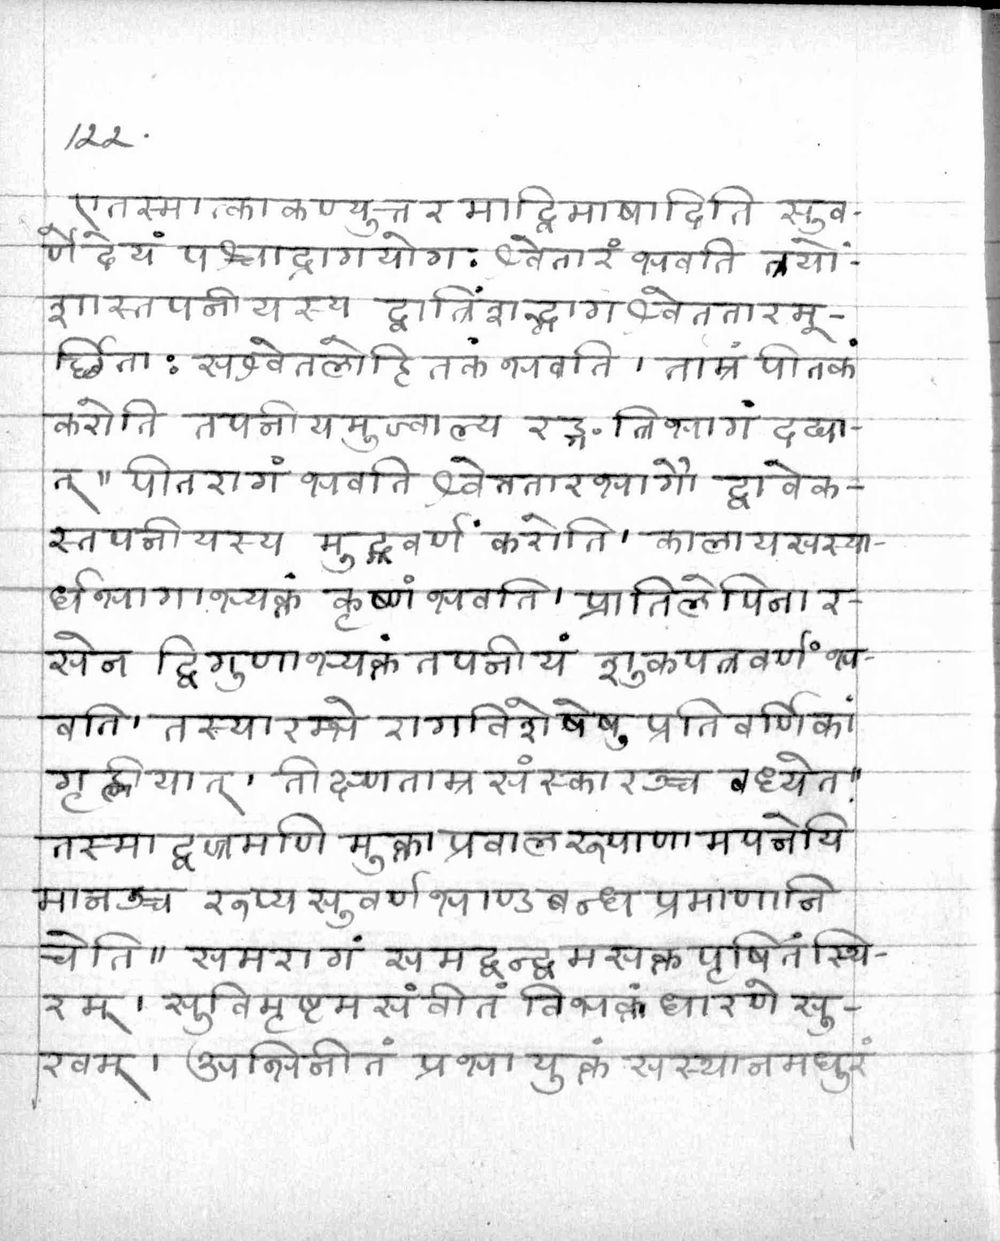 122.
एतस्मात्काकण्युत्तरमाद्विमाषादिति सुव-
र्णे देयं पश्चाद्रागयोगः श्वेतारं भवति त्रयों-
शास्तपनीयस्य द्वात्रिंशद्भाग श्वेततारमू-
र्छिताः सश्वेतलोहितकं भवति। ताम्रं पीतकं
करोति तपनीयमुज्वाल्य रङ्ग-त्रिभागं दद्या-
त्॥ पीतरागं भवति श्वेततारभागौ द्वावेक-
स्तपनीयस्य मुद्गवर्णं करोति। कालायसस्या-
र्धभागाभ्यक्तं कृष्णं भवति। प्रातिलेपिनार-
सेन द्विगुणाभ्यक्तं तपनीयं शुकपत्रवर्णं भ-
वति। तस्यारम्भे रागविशेषेषु प्रतिवर्णिकां
गृह्णीयात्। तीक्ष्णताम्रसंस्कारञ्च बध्येत॥
तस्माद्वज्रमणि मुक्ताप्रवालरूपाणामपनेयि
मानञ्च रूप्यसुवर्णभाण्डबन्धप्रमाणानि
चेति॥ समरागं समद्वन्द्वमसक्तपृषितंस्थि-
रम्। सुविमृष्टमसंवीतं विभक्तंधारणे सु-
खम्। अभिनीतं प्रभायुक्तं सस्थानमधुरं